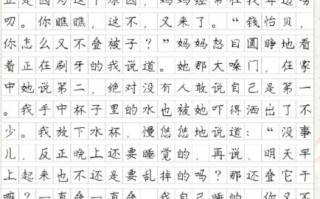 正是因为这个原因，妈妈经常在我耳边唠
叨。你瞧瞧，这不，又来了。“钱怡贝，
你怎么又不叠被子？”妈妈怒目圆睁地看
着正在刷牙的我说道。她那大嗓门，在家
中她说第二，绝对没有人敢说自己是第一
。我手中杯子里的水也被她吓得洒出了不
少。我放下水杯，慢悠悠地说道：“没事
儿，反正晚上还要睡觉的，再说，明天早
上起来也不还是要乱掉的吗？那还叠它干